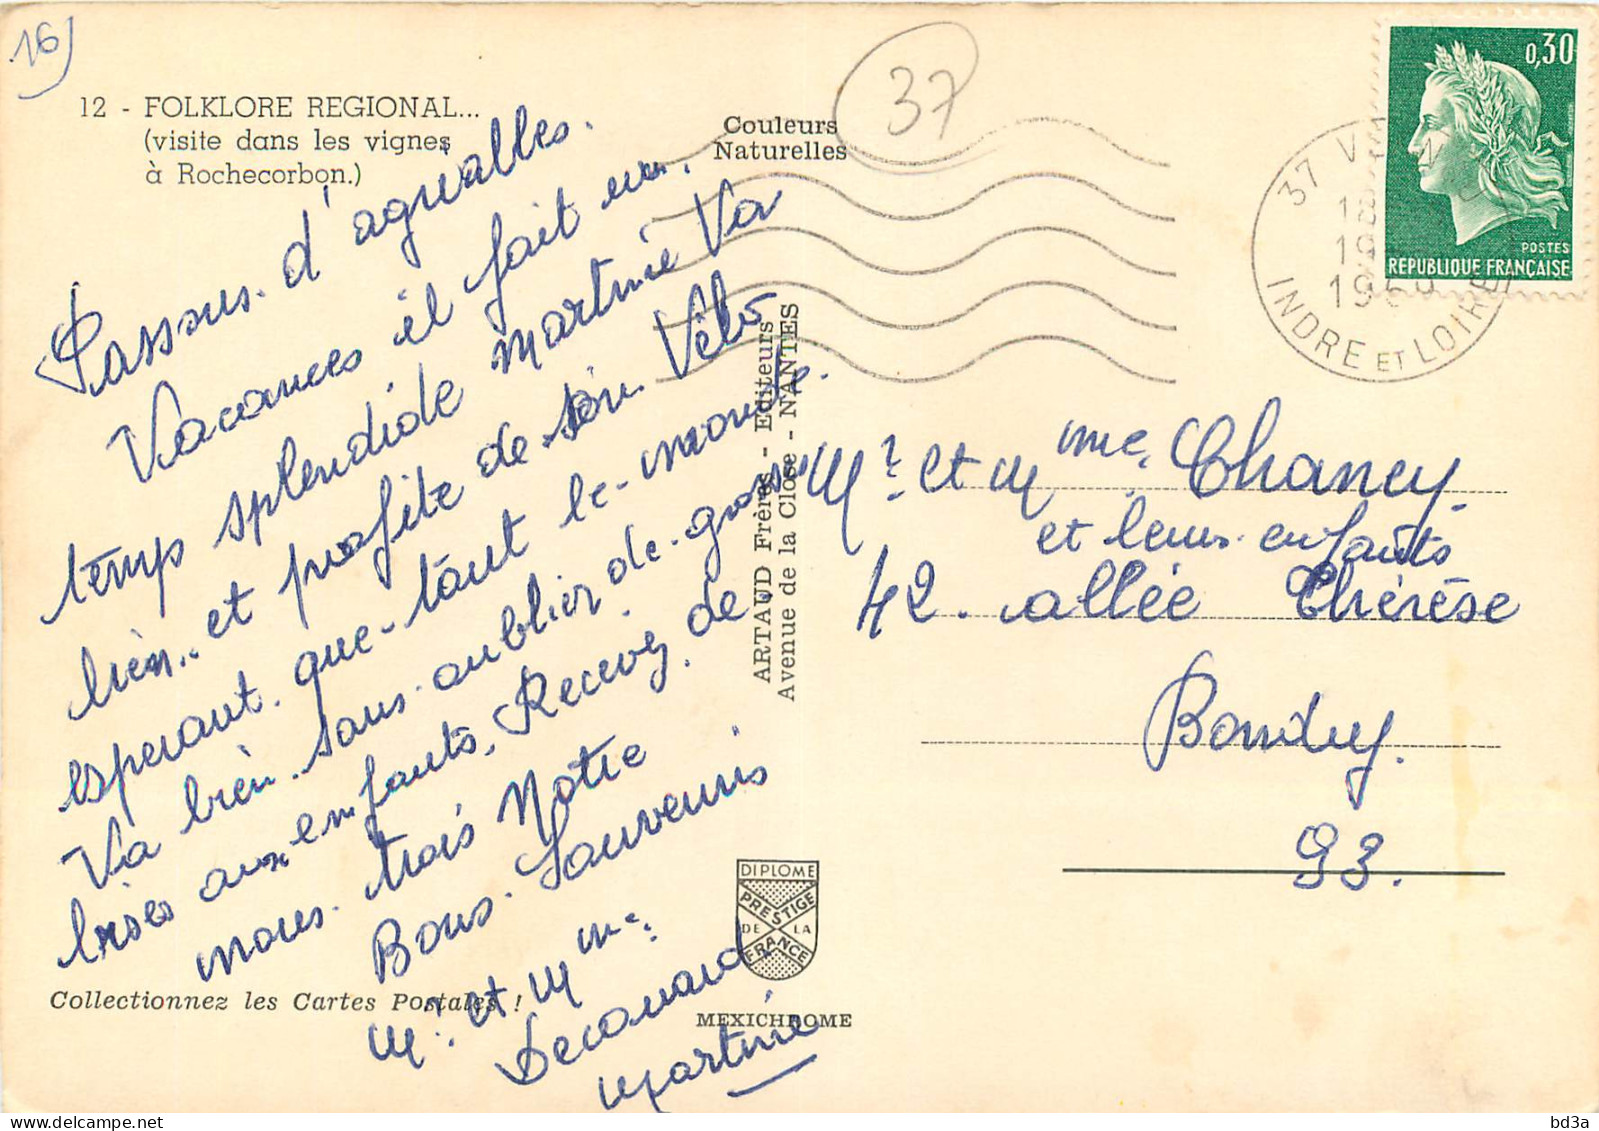 16)
12 - FOLKLORE REGIONAL...
(visite dans les vignes
à Rochecorbon.)
Couleurs
Naturelles
37
0,30
POSTES
REPUBLIQUE FRANÇAISE
37
18
19
1969
INDRE ET LOIRE
Passons d'agréables
Vacances il fait un
temp splendide martine Va
bien et profite de son Vélo
esperant que tout le monde
Va bien sans oublier de grosses
bises aux enfants. Recevez de
nous trois Notre
Bons Souvenirs
Mr et Mme
Decouard
Martine
ARTAUD Frères - Editeurs
Avenue de la Close - NANTES
Mr et Mme Chaney
et leurs enfants
42 allée Thérèse
Bondy.
93.
DIPLOME
PRESTIGE
DE LA
FRANCE
Collectionnez les Cartes Postales !
MEXICHROME
bd3a